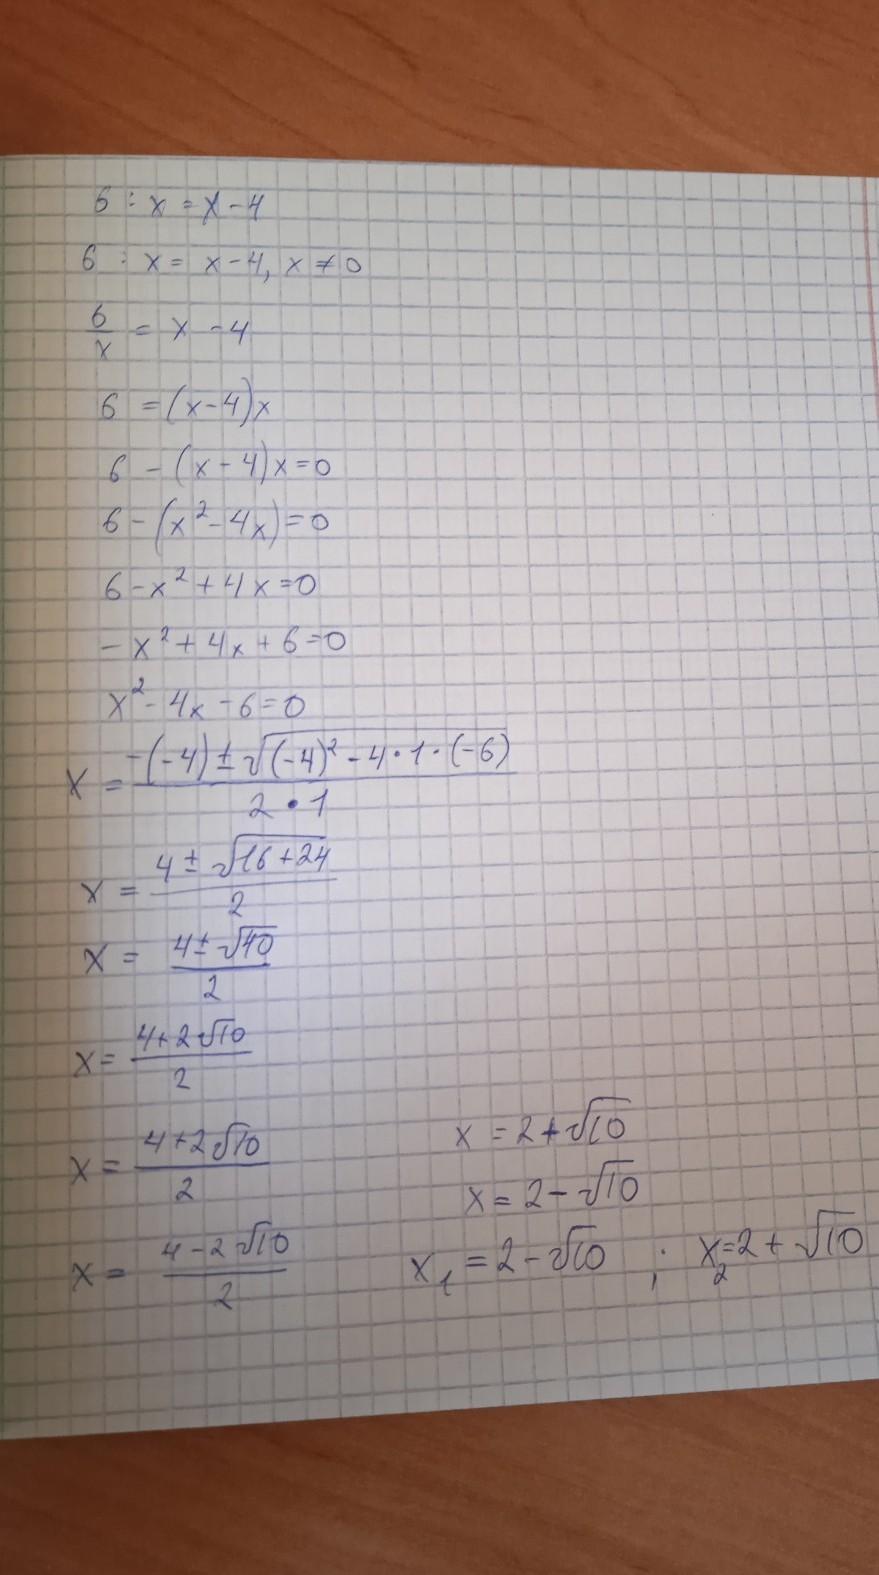 6 : x = x - 4
6 : x = x - 4, x ≠ 0
6/x = x - 4
6 = (x-4)x
6 - (x - 4)x = 0
6 - (x² - 4x) = 0
6 - x² + 4x = 0
- x² + 4x + 6 = 0
x² - 4x - 6 = 0
x = (-(-4) ± √((-4)² - 4 · 1 · (-6)))/(2 · 1)
x = (4 ± √(16 + 24))/2
x = (4 ± √40)/2
x = (4 + 2√10)/2
x = (4 + 2√10)/2
x = (4 - 2√10)/2
x = 2 + √10
x = 2 - √10
x₁ = 2 - √10 ; x₂ = 2 + √10